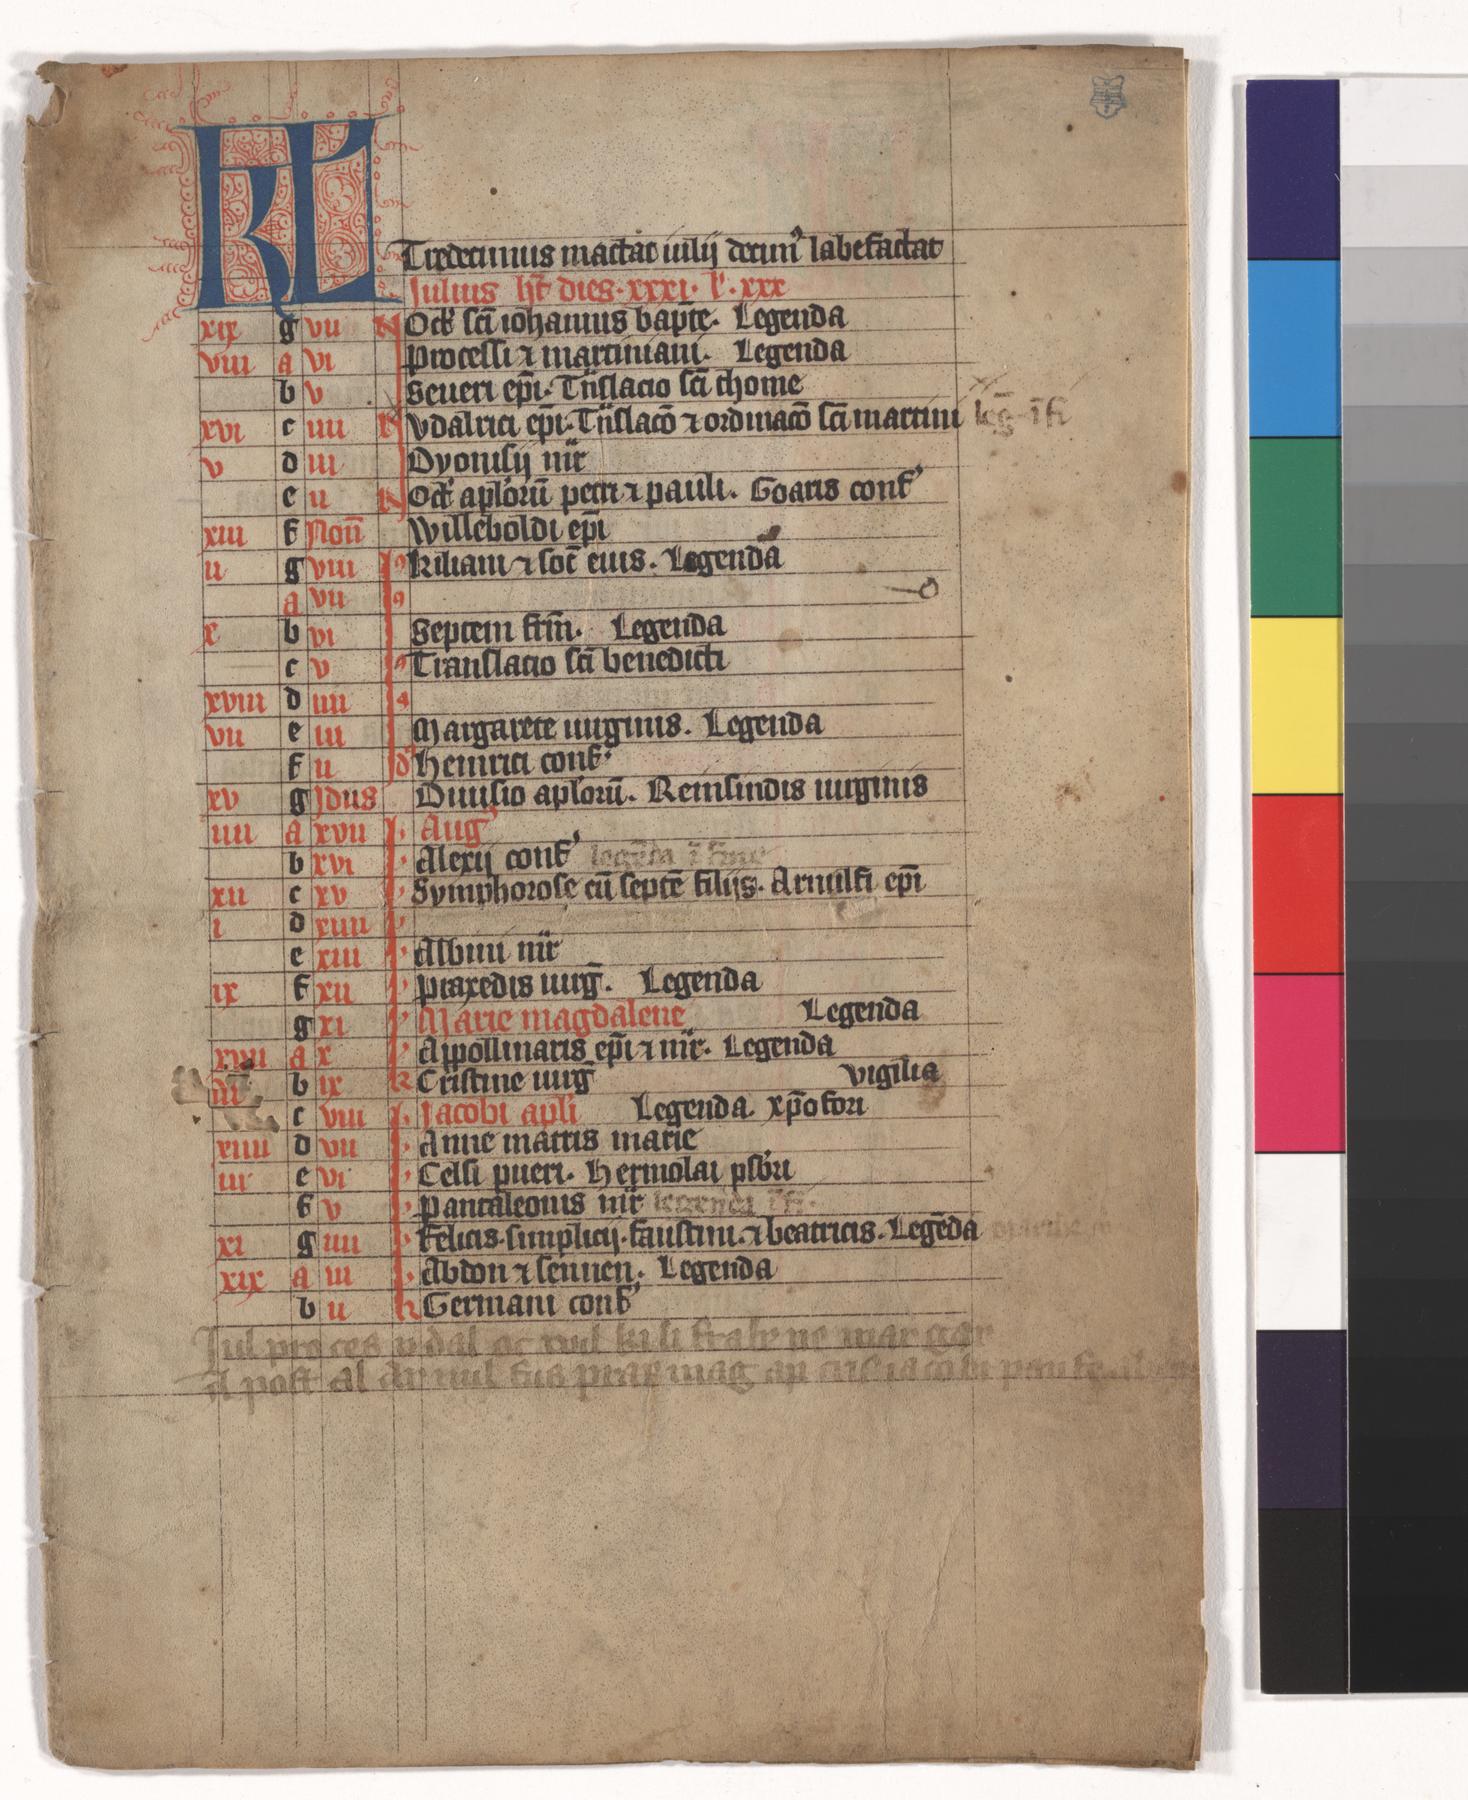 KL Tredecimus mactat iulij decim᷒ labefactat
Julius hꝫ dies· xxxi· l᷒· xxx
xix g vii N Oct᷒ sc̄i iohannis bapt̄e· Legenda
viii a vi Processi ⁊ martiniani· Legenda
b v Seueri ep̄i· Trͣnslacio sc̄i thome
xvi c iiii N Vdalrici ep̄i· Trͣnslaco᷒ ⁊ ordinaco᷒ sc̄i martini leg̅ ī fi
v d iii Dyonisij mr̄
e ii N Oct᷒ aplorū petri ⁊ pauli· Goaris conf᷒
xiii f Non̄ Willeboldi ep̄i
ii g viii I Kiliani ⁊ soc̄ eius· Legenda
a vii
x b vi Septem fr̄m̄· Legenda
c v Translacio sc̄i benedicti
xviii d iiii
vii e iii Margarete uirginis· Legenda
f ii Heinrici conf᷒
xv g Jdus Diuisio aplorū· Reinsindis uirginis
iiii a xvii k Aug᷒
b xvi Alexij conf᷒ legēda ī fine
xii c xv Symphorose cū septē filijs· Arnulfi ep̄i
i d xiiii
e xiii Albini mr̄
ix f xii Praxedis uirg̅· Legenda
g xi Marie magdalene Legenda
xvii a x Appollinaris ep̄i ⁊ mr̄· Legenda
vi b ix k Cristine uirg̅ vigilia
c viii Jacobi apl̄i Legenda· xp̄ofori
xiiii d vii Anne matris marie
iii e vi Celsi pueri· Hermolai pſbri
f v Pantaleonis mr̄ legenda ī fi·
xi g iiii Felicis· simplicij· faustini· ⁊ beatricis· Legēda
xix a iii Abdon ⁊ sennen· Legenda
b ii k Germani conf᷒
Jul proces vdal oc wil kili fratr be mar gar
al post al ar nul fus prax mag ap cris iacobi pan fe